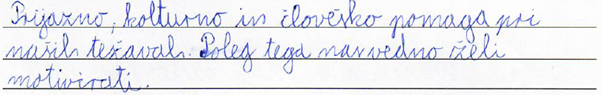 Prijazno, kolturno in človeško pomaga pri
naših težavah. Poleg tega nas vedno želi
motivirati.